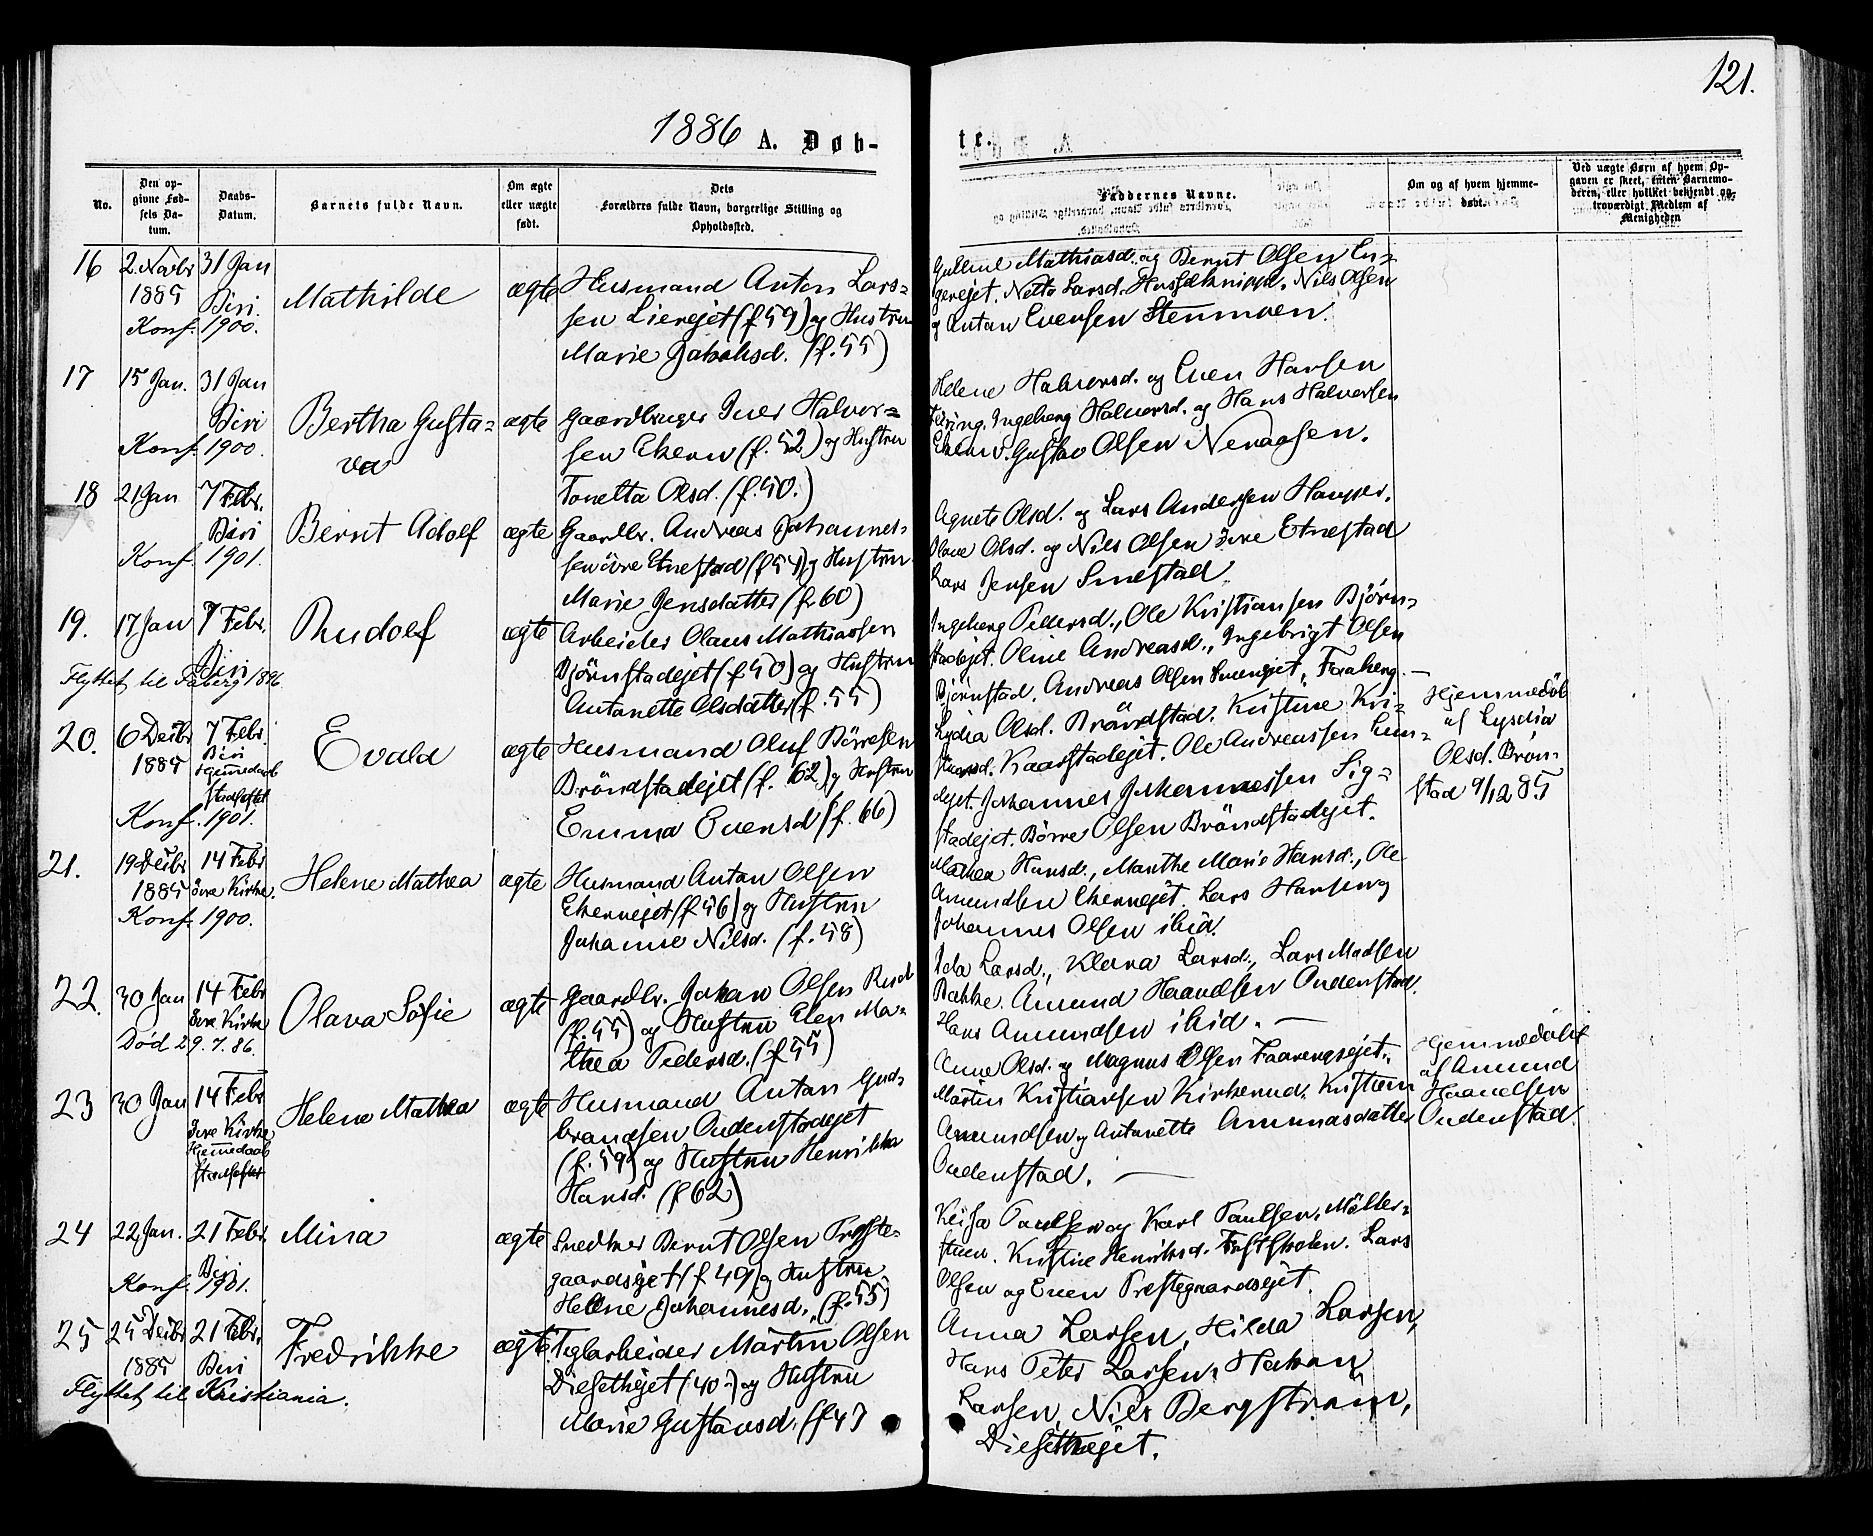 121.
1886 A. Døb-
te.
No.
Den op-
givne Fød-
sels Da-
tum.
Daabs-
Datum.
Barnets fulde Navn.
Om ægte
eller uægte
født.
Dets
Forældres fulde Navn, borgerlige Stilling og
Opholdssted.
Faddernes Navne.
Om og af hvem hjemme-
døbt.
Ved uægte Børn af hvem Op-
gaven er skeet, enten Barnemo-
deren, eller hvilket bekjendt og
troværdigt Medlem af
Menigheden
16
2 Novbr
1885
Konf. 1900.
31 Jan
Biri.
Mathilde
ægte
Husmand Anton Lars=
sen Lierejet (f 59) og Hustru
Marie Jakobsd. (f. 55)
Mathiasd. og Bernt Olsen En=
gerejet. Larsd. Nils Olsen
og Antan Evensen Stenmoen.
17
15 Jan.
31 Jan
Biri
Konf. 1900.
Bertha Gusta=
va
ægte
Gaardbruger Iver Halvor=
sen Ekern (f. 52) og Hustru
Tonetta Olsd. (f. 50.)
Helene Halvorsd. og Even Hansen
Ingeborg Halvorsd. og Hans Halvorsen
Ekern. Gustav Olsen Neraasen.
18
21 Jan
7 Febr.
Biri
Konf. 1901.
Bernt Adolf
ægte
Gaardbr. Andreas Johannes-
sen övre Etnestad (f 54) og Hustru
Marie Jensdatter (f. 60)
Agnete Olsd. og Lars Andersen
Olsd. og Nils Olsen övre Etnestad
Lars Jensen Smestad.
19.
17 Jan
7 Febr.
Biri
Flyttet til Faberg 1896
Rudolf
ægte
Arbeider Olaus Mathiassen
Björnstadejet (f 50) og Hustru
Antonette Olsdatter (f. 55)
Ingeborg Pedersd., Ole Kristiansen Björn=
stadejet. Oline Andreasd., Ingebrigt Olsen
Björnstad. Andreas Olsen Faaberg. —
20.
6 Decbr
1885
7 Febr.
Biri
Hjemmedaab
stadfestet
Konf. 1901.
Evald
ægte
Husmand Oluf Börresen
Bröndstadejet (f. 62) og Hustru
Emma Evensd (f. 66)
Lydia Olsd. Bröndstad. Kristine Kri=
Kaarstadejet. Ole Andreassen Lun=
dejet. Johannes Johannessen Sig=
stadejet. Börre Olsen Bröndstadejet.
Hjemmedöb
af Lysdia
Olsd. Brön-
stad 9/12 85
21.
19 Decbr
1885
14 Febr
övre Kirke.
Konf. 1900.
Helene Mathea
ægte
Husmand Antan Olsen
Ekernejet (f 56) og Hustru
Johanne Nilsd. (f. 58)
Mathea Hansd., Marthe Marie Hansd., Ole
Amundsen Ekernejet. Lars Hansen og
Johannes Olsen ibid.
22.
30 Jan
14 Febr
övre Kirke
Död 29.7.86.
Olava Sofie
ægte
Gaardbr. Johan Olsen Rud
(f. 55) og Hustru Elen Ma=
thea Pedersd. (f 55)
Ida Larsd., Klara Larsd., Lars Madsen
Bakke. Amund Haandsen Oudenstad.
Hans Amundsen ibid. —
23
30 Jan
14 Febr
övre Kirke
Hjemmedaab
stadfestet
Helene Mathea
ægte
Husmand Antan Gud=
brandsen Oudenstadejet
(f. 59) og Hustru Henrikka
Hansd. (f 62)
Anne Olsd. og Magnus Olsen
Martin Kristiansen Kirkerud. Kristian
Amundsen og Antonette Amundsdatter
Oudenstad. —
Hjemmedöbt
af Amund
Haandsen
Oudenstad.
24
22 Jan.
21 Febr.
Biri
Konf. 1901.
Mina
ægte
Snedker Bernt Olsen Preste-
gaardsejet (f 49) og Hustru
Helene Johannesd. (f. 55)
Paulsen og Karl Paulsen, Möller=
stuen. Kristine Henriksd. Lars
Olsen og Even Prestegaardsejet.
25
25 Decbr
1885
21 Febr.
Biri
Flyttet til Kristiania.
Fredrikke
ægte
Teglarbeider Martin Olsen
Diesethejet (40.) og Hustru
Marie Gustavsd. (f 43
Anna Larsen, Hilda Larsen,
Hans Peter Larsen, Hakan
Larsen, Nils Bergström,
Diesethejet.